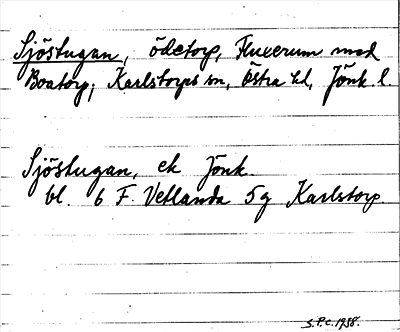 Sjöstugan, ödetorp, Fluxerum med
Boatorp, Karlstorps sn, Östra hd, Jönk. l.
Sjöstugan, ek Jönk.
bl. 6 F. Vetlanda 5 g Karlstorp.
S.P.C. 1938.